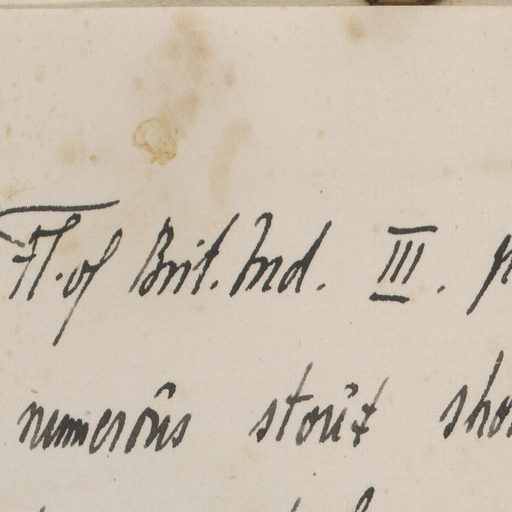 Fl. of Brit. Ind. III. p
numerous stout sho